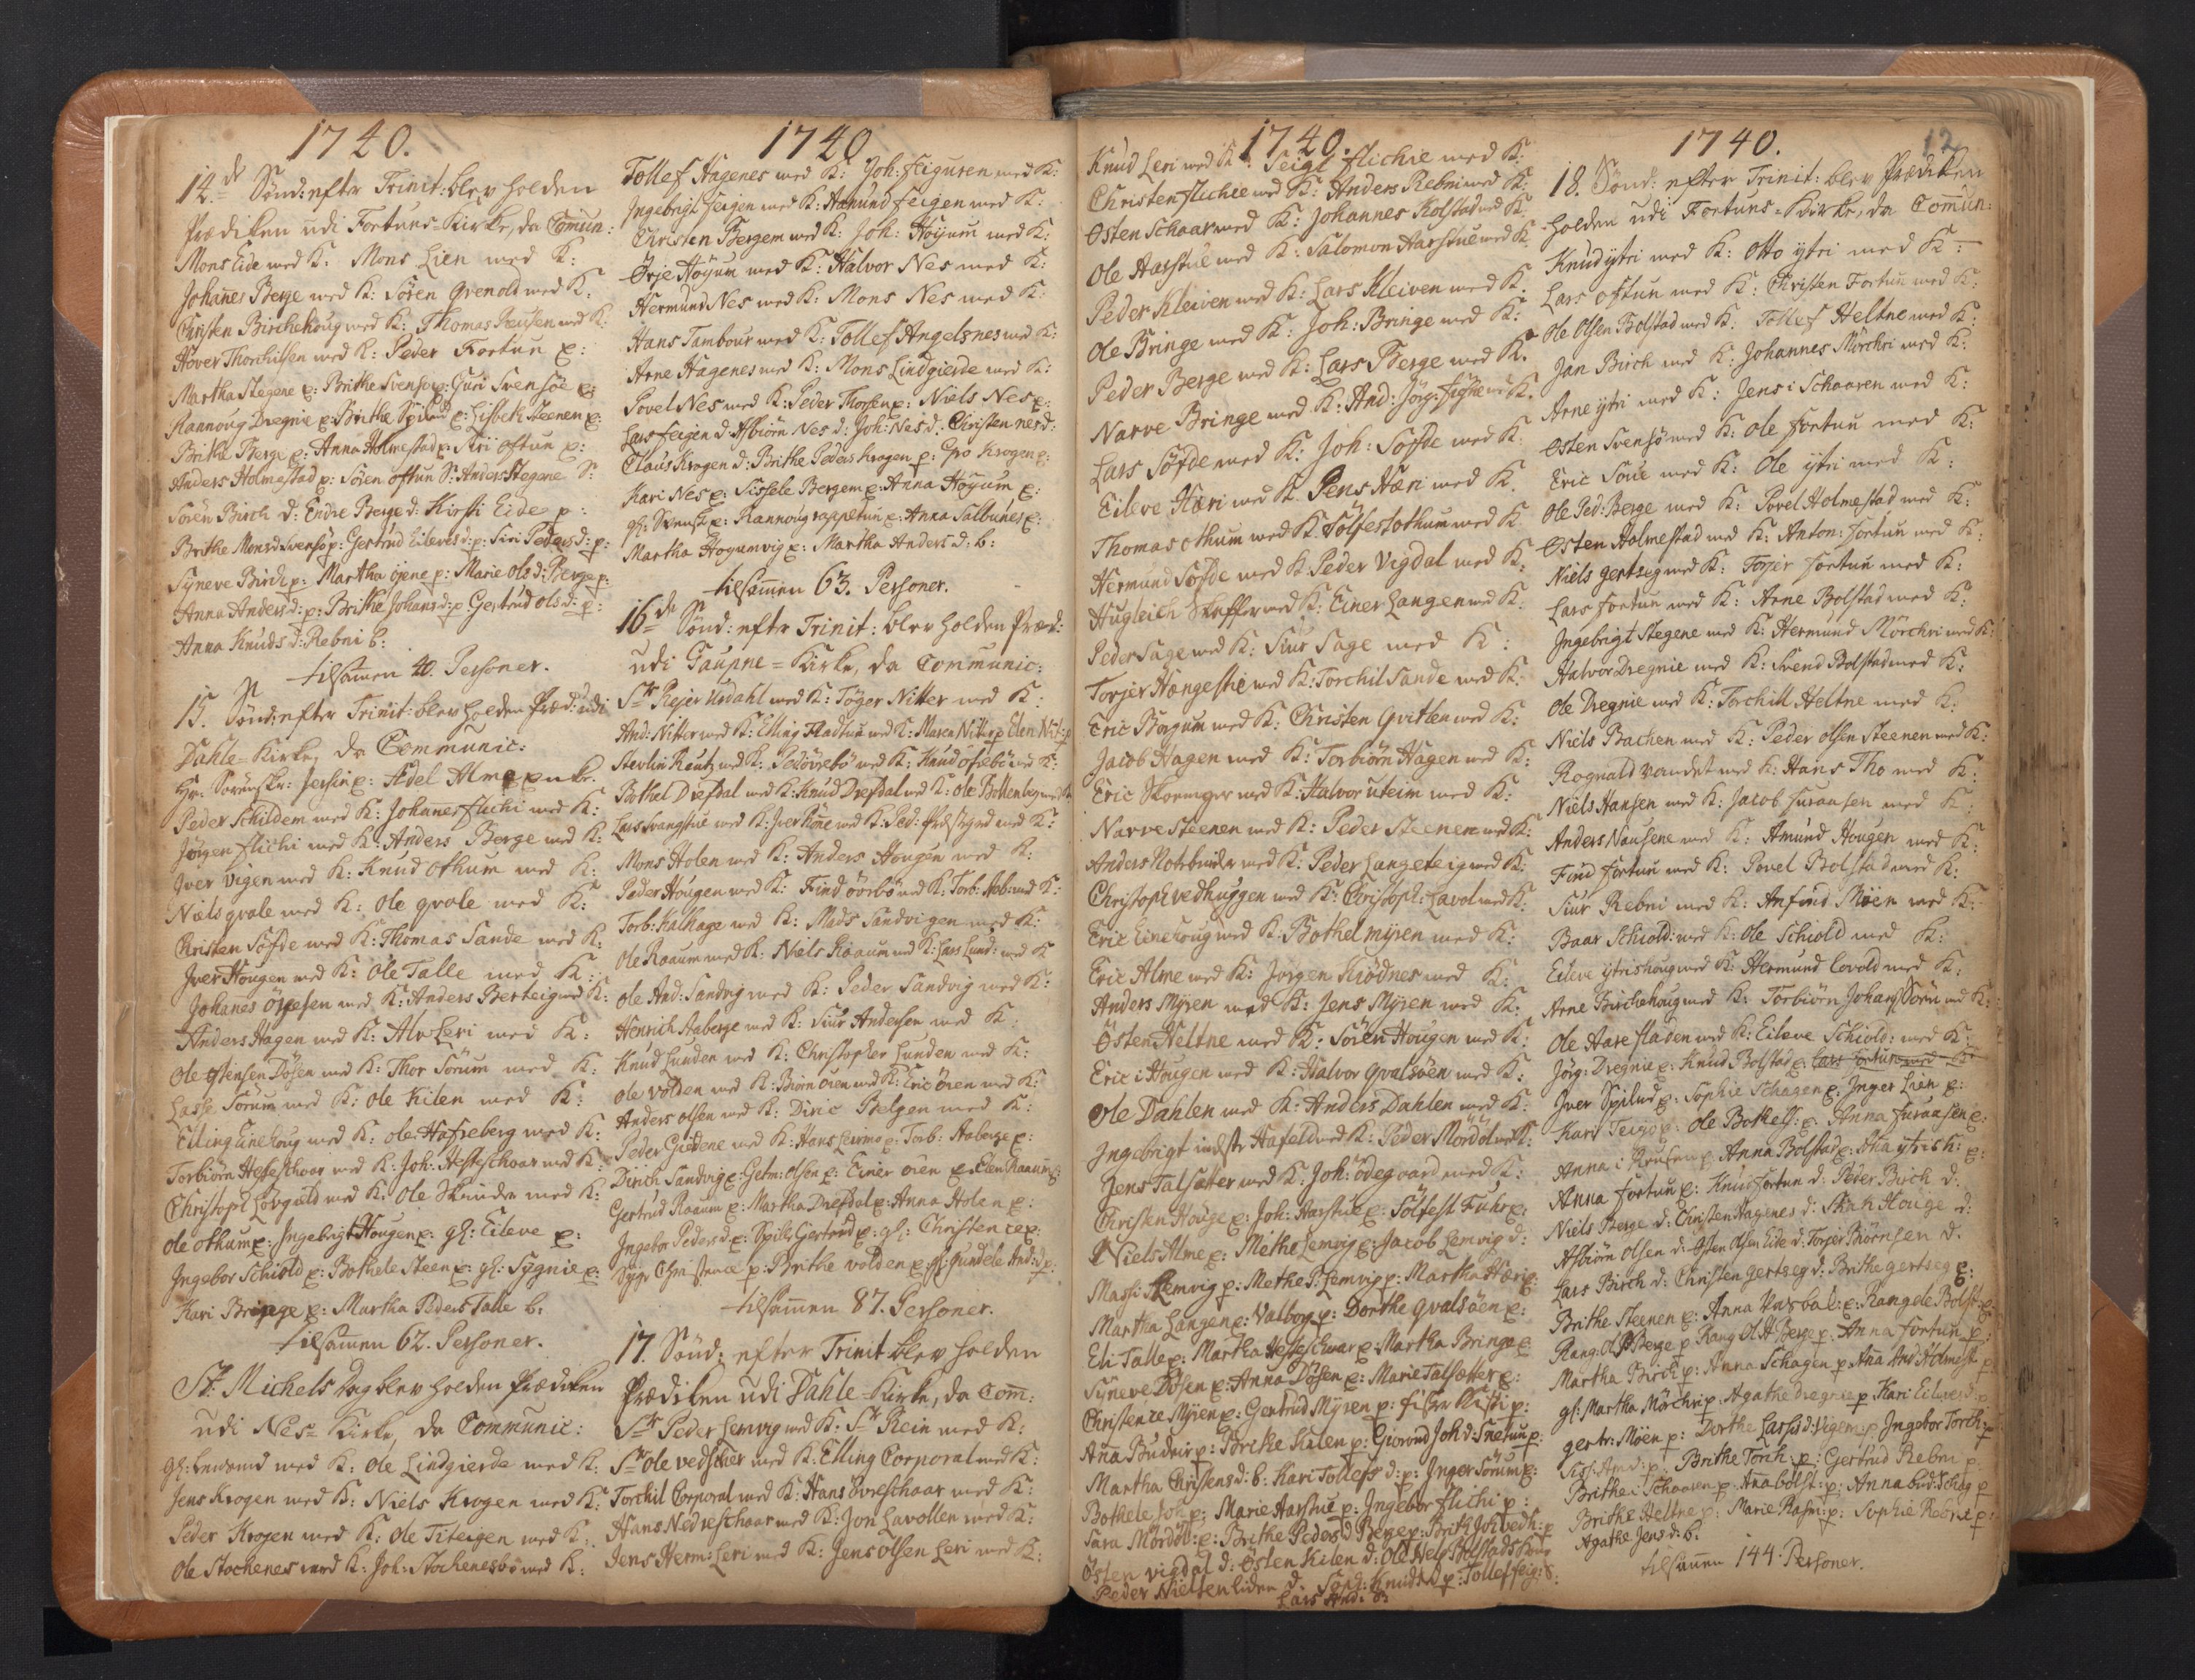 1740.
14.de Sönd: efter Trinit: blev holden
Prædiken udi Fortuns-Kirke, da Comun:
Mons Eide med K: Mons Lien med K:
Johanes Berge med K: Sören Qvenold med K.
Christen Birchehoug med K: Thomas Paulsen med K:
Håver Thorchilsen med K: Peder Fortun p:
Martha Stegene p: Brithe Svensöe p: Guri Svensöe p:
Rannoug Dregnie p: Brithe Spilud p: Lisbeth Steenen p:
Brithe Berge p: Anna Holmestad p: Siri Oftun p:
Anders Holmestad p: Sören Oftun S: Anders Stegene S:
Sören Birch d: Endre Berge d: Kirsti Eide p:
Brithe Monsd: Svensö p: Gertrud Eilevsd: p: Siri Pedersd: p:
Syneve Birch p: Martha Öjene p: Marie Olsd: Berge p:
Anna Andersd: p: Brithe Johansd: p Gertrud Olsd: p:
Anna Knudsd: Rebni b:
tilsamen 40. Personer.
15. Sönd: efter Trinit: blev holden Præd: udi
Dahle-Kirke, da Communic:
Hr: Sörensk: Jersin p: Adel Alme enke.
Peder Schildem med K: Johanes Flichi med K:
Jörgen Flichi med K: Anders Berge med K:
Iver Vigen med K: Knud Othum med K:
Niels Qvale med K: Ole Qvale med K:
Christen Söfde med K: Thomas Sande med K:
Iver Hougen med K: Ole Talle med K:
Johanes Örresen med K: Anders Berteig med K:
Anders Hagen med K: Alv Leri med K:
Ole Ostensen Dösen med K: Thor Sörum med K:
Lasse Sörum med K: Ole Kilen med K:
Elling Einehoug med K: Ole Hafreberg med K:
Torbiörn Hesteschoar med K: Joh: Hesteschoar med K:
Christoph Lövguld med K: Ole Skinder med K:
Ole Othum p: Ingebrigt Hougen p: gl: Eileve p:
Ingebor Schiold p: Bothele Steen p: gl: Sygnie p:
Kari Bringe p: Martha Peders Talle b:
tilsamen 62. Personer.
St: Michels Dag blev holden Prædiken
udi Nes-Kirke, da Communic:
gl: med K: Ole Lindgierde med K:
Jens Krogen med K: Niels Krogen med K:
Peder Krogen med K: Ole Titeigen med K:
Ole Stochenes med K: Joh: Stochenesbö med K:
1740
Tollef Hagenes med K: Joh: Feiguren med K:
Ingebrigt Feigen med K: Hamund Feigen med K:
Christen Bergem med K: Joh: Höyum med K:
Örje Höyum med K: Halvor Nes med K:
Hermund Nes med K: Mons Nes med K:
Hans Tambour med K: Tollef Angelsnes med K:
Arne Hagenes med K: Mons Lindgierde med K:
Povel Nes med K: Peder Thorsen p: Niels Nes p:
Lars Feigen d: Asbiörn Nes d: Joh: Nes d: Christen Nes d:
Claus Krogen d: Brithe Peders Krogen p: Gro Krogen p:
Kari Nes p: Sissele Bergem p: Anna Höyum p:
gl: Svensk p: Rannoug p: Anna Salbunes p:
Martha Höyumvig p: Martha Andersd: b:
tilsamen 63. Personer.
16.de Sönd: efter Trinit: blev holden Præd:
udi Gaupne-Kirke, da Communic:
Sr Rejer Urdahl med K: Töger Nitter med K:
And: Nitter med K: Elling Fladhus med K: Maren Nitter p: Elen Nit: p
Stevlin Reutz med K: Ped: övrebö med K: Knud ofrebö med K:
Bothel Drefdal med K: Knud Drefdal med K: Ole Bollenberg med K:
Lars Svangstue med K: Iver Röne med K: Ped: Præstegrd med K:
Mons Holen med K: Anders Hougen med K:
Peder Hougen med K: Find Övrbö med K: Torb: Aab: med K:
Torb: Kalhage med K: Mads Sandvigen med K:
Ole Raaum med K: Niels Raaum med K: Lars Lund: med K
Ole And: Sandvig med K: Peder Sandvig med K:
Henrich Aaberge med K: Siur Andersen med K:
Knud Lunden med K: Christopher Lunden med K:
Ole Volden med K: Biörn Öien med K: Eric Öien med K:
Anders Olsen med K: Diric Belgen med K:
Peder Giedene med K: Hans Leirmo p: Torb: Aaberge p:
Dirich Sandvig p: Getm: Olsen p: Einer Öien p: Elen Raaum p:
Gertrud Raaum p: Martha Drefdal p: Anna Holen p:
Ingebor Pedersd p: Spille Gertrud p: gl: Christence p:
Syge Christence p: Brithe Volden p: gl: Gundele And:d p:
tilsamen 87. Personer.
17. Sönd: efter Trinit blev holden
Prædiken udi Dahle-Kirke, da Com:
Sr Peder Lemvig med K: Sr Rein med K:
Sr Ole Vedseter med K: Elling Corporal med K:
Torchil Corporal med K: Hans övreschaar med K:
Hans Nedreschaar med K: Jon Lavollen med K:
Jens Herm: Leri med K: Jens Olsen Leri med K:
1740.
Knud Leri med K: Seigl Flichie med K:
Christen Flichie med K: Anders Rebni med K:
Osten Schaar med K: Johannes Kolstad med K:
Ole Harstue med K: Salomon Harstue med K:
Peder Kleiven med K: Lars Kleiven med K:
Ole Bringe med K: Joh: Bringe med K:
Peder Berge med K: Lars Berge med K:
Narve Bringe med K: And: Jörg: med K.
Lars Söfde med K: Joh: Söfde med K:
Eileve Hæri med K: Jens Hæri med K.
Thomas Othum med K: Sölfest Othum med K
Hermund Söfde med K: Peder Vigdal med K:
Hugleich Skeffer med K: Einer Langen med K:
Peder Sage med K: Siur Sage med K:
Torjer Hængestie med K: Torchil Sande med K:
Eric Borgum med K: Christen Qvitlen med K:
Jacob Hagen med K: Torbiörn Hagen med K:
Eric med K: Halvor Uteim med K:
Narve Steenen med K: Peder Steenen med K:
Anders Notebinder med K: Peder Langeteig med K:
Christoph Vedhuggen med K: Christoph: Lavol med K:
Eric Einehoug med K: Bothel Myren med K:
Eric Alme med K: Jörgen Kiödnes med K:
Anders Myren med K: Jens Myren med K:
Östen Heltne med K: Sören Hougen med K:
Eric i Hougen med K: Halvor Qvalsöen med K:
Ole Dahlen med K: Anders Dahlen med K:
Ingebrigt Hafeld med K: Peder Mördöl med K:
Jens Talsetter med K: Joh: Ödegaard med K:
Christen Houge p: Joh: Harstue p: Sölfest Fuhr p:
Niels Alme p: Methe Lemvig p: Jacob Lemvig d:
Massi Lemvig p: Methe P. Lemvig p: Martha Hæri p:
Martha Langen p: Valborg p: Dorthe Qvalsöen p:
Eli Talle p: Martha Hesteschoar p: Martha Bringe p:
Syneve Dösen p: Anna Dösen p: Marie Talsetter p:
Christence Myren p: Gertrud Myren p: Kisti p:
Ana Budeir p: Sörcke Skilen p: Giorond Joh:d: Snetun p:
Martha Christensd: b: Kari Tollefsd: p: Inger Sörum p:
Bothele Joh: p: Marie Harstue p: Ingebor Flichi p:
Sara Mördöl: p: Brithe Pedersd Berge p: Brith Joh: Vedh: p
Östen Vigdal d: Östen Kilen d: Ole Nels Bolstads
Peder Nielsen Liden d: Knudsd p: Tollef Feig: S:
Lars And: S:
1740. 12
18. Sönd: efter Trinit: blev Prædiken
holden udi Fortuns-Kirke, da Comun:
Knud Ytri med K: Otto Ytri med K:
Lars Oftun med K: Christen Fortun med K:
Ole Olsen Bolstad med K: Tollef Heltne med K:
Jan Birch med K: Johannes Mörchri med K:
Arne Ytri med K: Jens i Schaaren med K:
Osten Svensö med K: Ole Fortun med K:
Eric Soue med K: Ole Ytri med K:
Ole Ped: Berge med K: Povel Holmestad med K:
Osten Holmestad med K: Anton: Fortun med K:
Niels Gertseg med K: Torjer Fortun med K:
Lars Fortun med K: Arne Bolstad med K:
Ingebrigt Stegene med K: Hermund Mörchri med K:
Halvor Dregnie med K: Svend Bolstad med K:
Ole Dregnie med K: Torchill Heltne med K:
Niels Bachen med K: Peder Olsen Steenen med K:
Rognald Vandet med K: Hans Tho med K:
Niels Hansen med K: Jacob Furaasen med K:
Anders Nausene med K: Amund Hougen med K:
Find Fortun med K: Povel Bolstad med K:
Siur Rebni med K: Anfind Möen med K:
Baar Schiold: med K: Ole Schiold med K:
Eileve Ytrishoug med K: Hermund Covold med K:
Arne Birchehoug med K: Torbiörn Johans Sören med K:
Ole Aareflaaten med K: Eileve Schiold: med K:
Jörg: Dregnie p: Knud Bolstad p: Lars Fortun med K:
Iver Spilud p: Sophie Schagen p: Inger Lien p:
Kari Teigo p: Ole Bothels: p: Anna Furaasen p:
Anna i p: Anna Bolstad p: Ana Ytrish: p:
Anna Fortun p: Knud Fortun d: Peder Birch d:
Niels Berge d: Christen Hagenes d: Houge d:
Asbiörn Olsen d: Osten Olsen Eide d: Torjer Biörnsen d.
Lars Birch d: Christen Gertseg d: Brithe Gertseg p:
Brithe Steenen p: Anna p: Rangele Bolst: p:
Rang: Ol: P: Berge p: Rang Ol: H: Berge p: Anna Fortun p:
Martha Birch p: Anna Schagen p: Ana And: Holmest: p
gl: Martha Mörchri p: Agathe Dregnie p: Kari Eilevsd: p
gertr: Möen p: Dorthe Larsd: Vigen p: Ingebor Torch: p
Brithe Torch: p: Gertrud Rebni p:
Brithe i Schaaren p: Ana Bolst: p: Anna Bud: Schag p
Brithe Heltne p: Marie Rasm: p: Sophie p:
Agathe Jensd: b:
tilsamen 144. Personer.